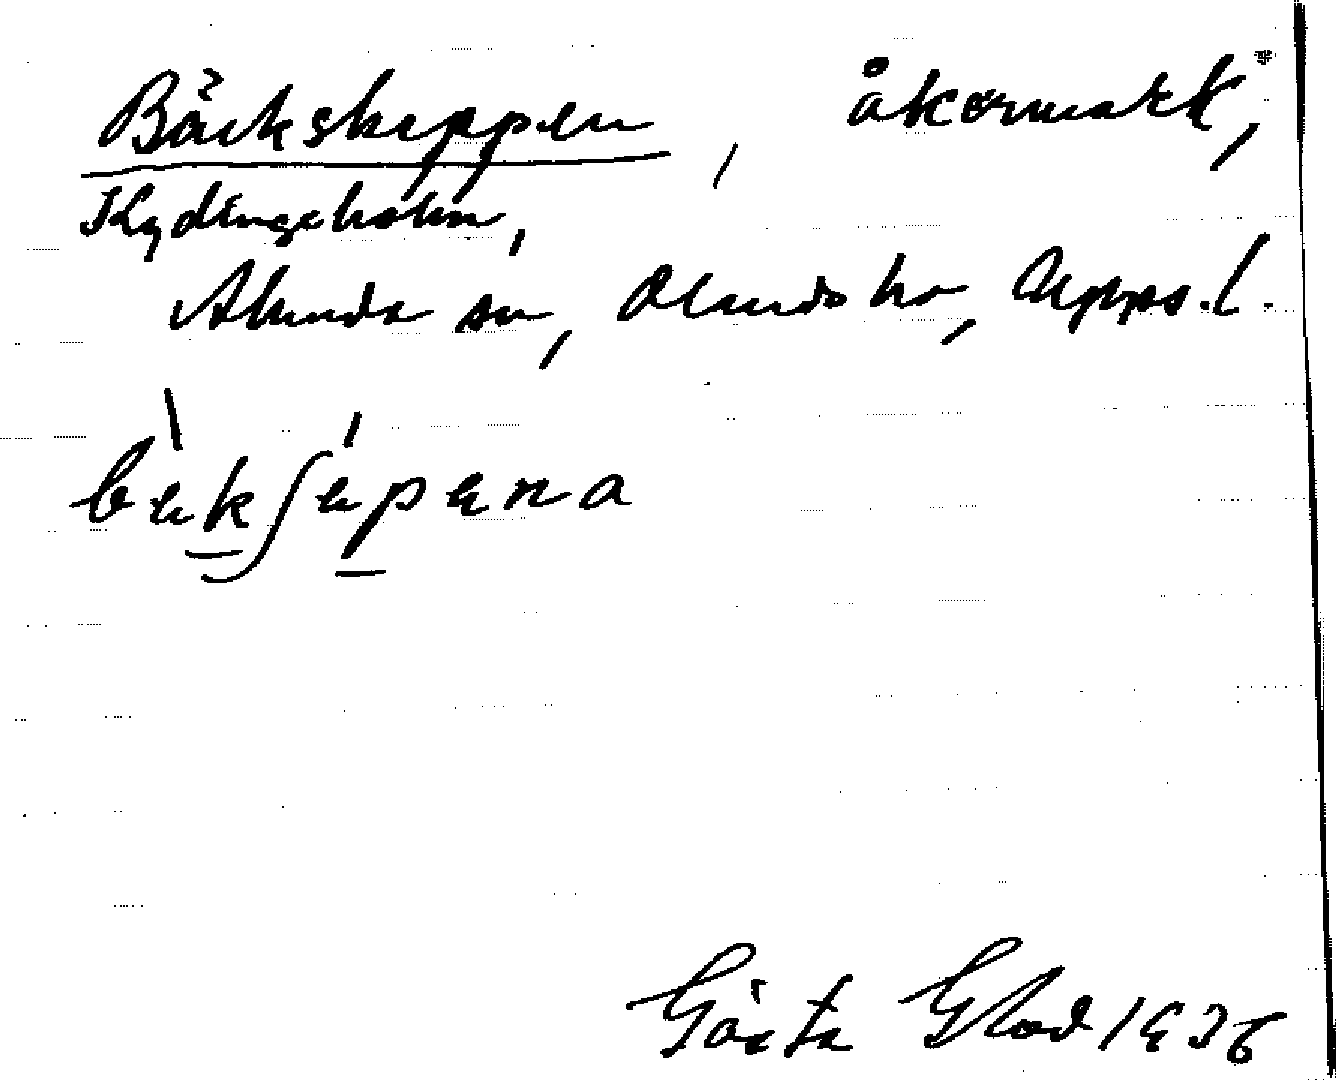 Bäckskeppen, åkermark,
Kydingeholm,
Alunda sn, Olands hd, Upps. l.
bɛ̀kʃɛ́pɛna
Gösta Glad 1936